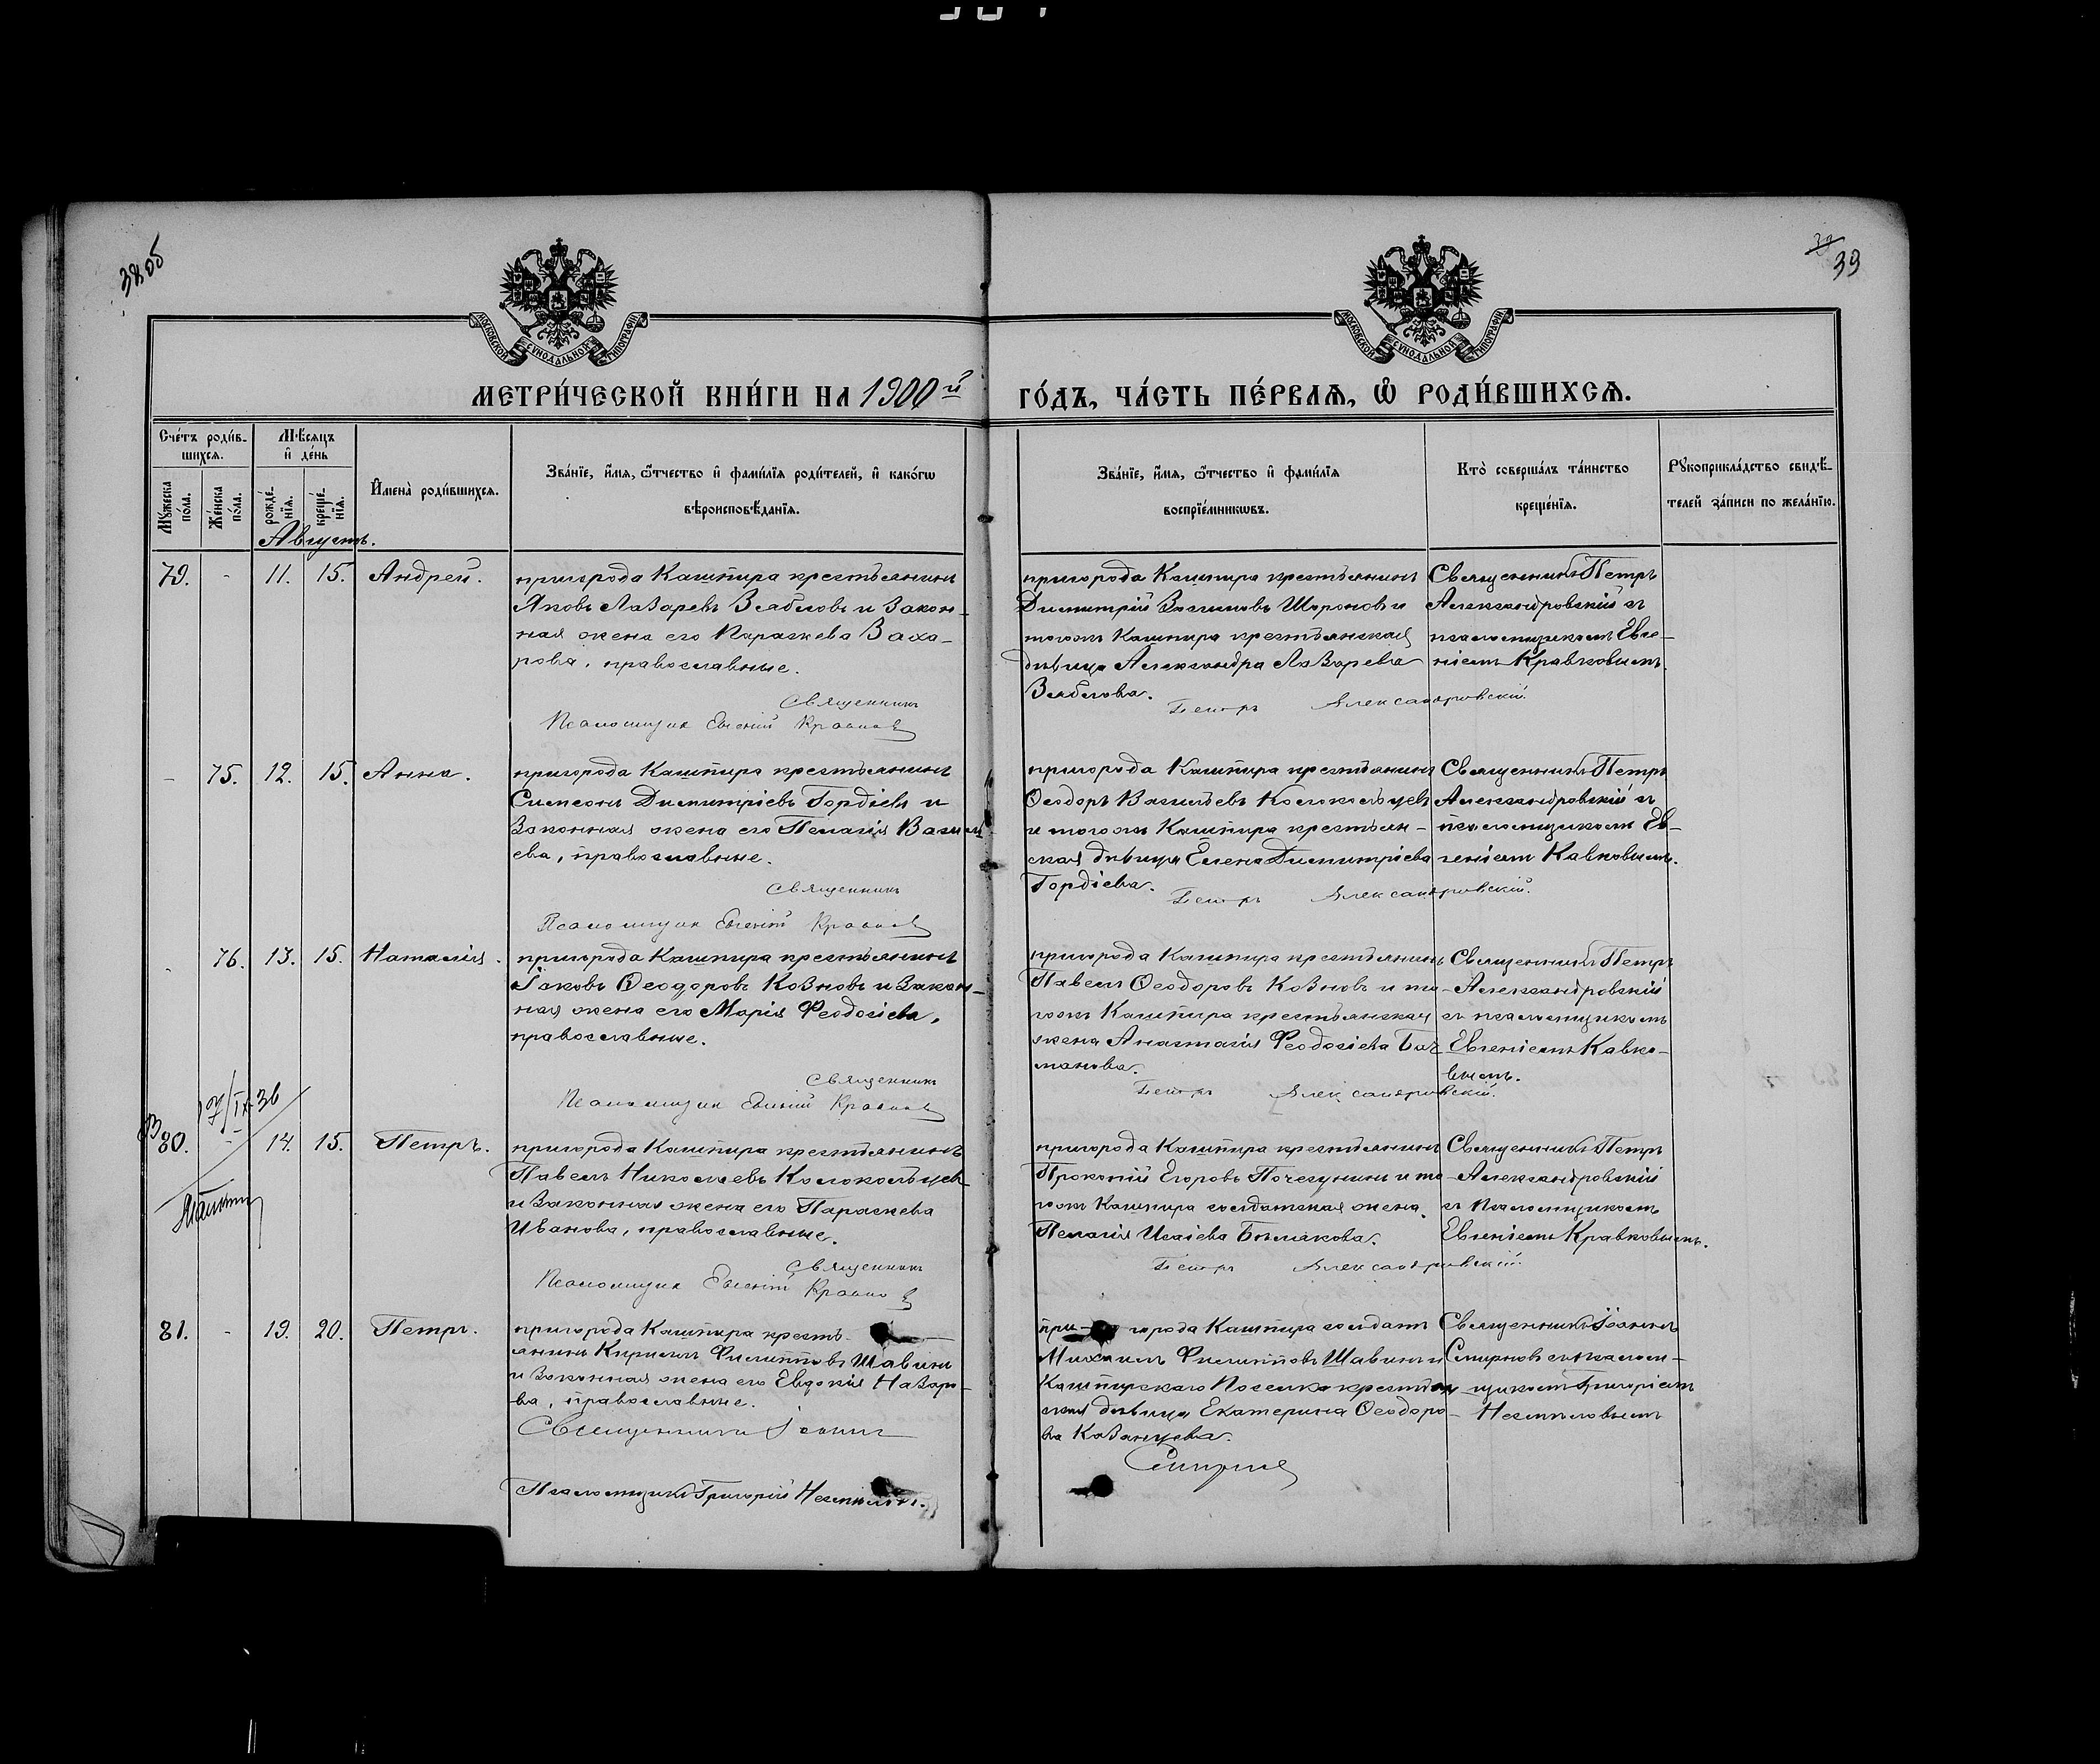 3805
39
39
МОСКОВСКОЙ СУНОДАЛЬНОЙ ТИПОГРАФІИ
МОСКОВСКОЙ СУНОДАЛЬНОЙ ТИПОГРАФІИ
МЕТРИ́ЧЕСКОЙ КНИ́ГИ НА 1900й ГО́ДЪ, ЧА́СТЬ ПЕ́РВАЯ, Ѡ҆ РОДИ́ВШИХСЯ.
Сче́тъ роди́в-
шихся.
Мѣ́сяцъ
и҆ де́нь
Мꙋ́жеска
по́ла.
Же́нска
по́ла.
рожде́-
нїя.
креще́-
нїя.
И҆мена̀ роди́вшихся.
Зва́нїе, и҆́мя, ѻ҆́тчество и҆ фами́лїя роди́телей, и҆ како́гѡ
вѣроисповѣ́данїя.
Зва́нїе, и҆́мя, ѻ҆́тчество и҆ фами́лїя
воспрїе́мникѡвъ.
Кто̀ соверша́лъ та́инство
креще́нїя.
Рꙋкоприкла́дство свидѣ́-
телей за́писи по жела́нїю.
Августъ.
79. - 11. 15. Андрей.
пригорода Кашпира крестьянинъ
Яковъ Лазаревъ Зяблов и закон-
ная жена его Параскева Заха-
рова, православные.
Священникъ
Псаломщик Евгений Кравков
пригорода Кашпира крестьянинъ
Димитрій
тогож Кашпира крестьянская
дѣвица Александра Лазарева
Зяблова.
Петръ Александровскій
Священникъ Петръ
Александровскій съ
псаломщикомъ Евге-
ніемъ Кравковымъ.
- 75. 12. 15. Анна.
пригорода Кашпира крестьянинъ
Симеонъ Димитріевъ Гордѣевъ и
законная жена его Пелагія Василь
ева, православные.
Священникъ
Псаломщик Евгеній Кравков
пригорода Кашпира крестьянинъ
Ѳеодоръ Васильевъ Колокольцевъ
и тогож Кашпира крестьян-
ская дѣвица Елена Димитріева
Гордіева.
Петръ Александровскій.
Священникъ Петръ
Александровскій съ
псаломщикомъ Ев-
геніемъ Кавковымъ.
- 76. 13. 15. Наталія.
пригорода Кашпира крестьянинъ
Іаковъ Ѳеодоровъ Козновъ и закон-
ная жена его Марія Феодосіева,
православные.
Священникъ
Псаломщик Евгений Кравков
пригорода Кашпира крестьянинъ
Павелъ Ѳеодоровъ Козновъ и то-
гож Кашпира крестьянская
жена Анастасія Феодосіева
Петръ Александровскій.
Священникъ Петръ
Александровскій
съ псаломщикомъ
Евгеніемъ Кавко-
вымъ.
7/IX 36
80. - 14. 15. Петръ.
пригорода Кашпира крестьянинъ
Павелъ Николаевъ Колокольцевъ
и законная жена его Параскева
Иванова, православные.
Священникъ
Псаломщик Евгеній Кравков
пригорода Кашпира крестьянинъ
Прокопій Егоровъ и то-
гож Кашпира солдатская жена
Пелагія Исаіева
Петръ Александровскій
Священникъ Петръ
Александровскій
съ псаломщикомъ
Евгеніемъ Кравковымъ.
81. - 19. 20. Петръ.
пригорода Кашпира кресть-
янинъ Кириллъ Филипповъ Шавинъ
и законная жена его Евдокія Назаро-
ва, православные.
Священникъ Іоаннъ
Псаломщикъ Григорій
при- города Кашпира солдатъ
Михаилъ Филипповъ Шавинъ и
Кашпирскаго Поселка крестьян
ская дѣвица Екатерина Ѳеодоро-
ва Казанцева.
Смирнов
Священникъ Іоаннъ
Смирновъ съ псалом-
щикомъ Григоріемъ